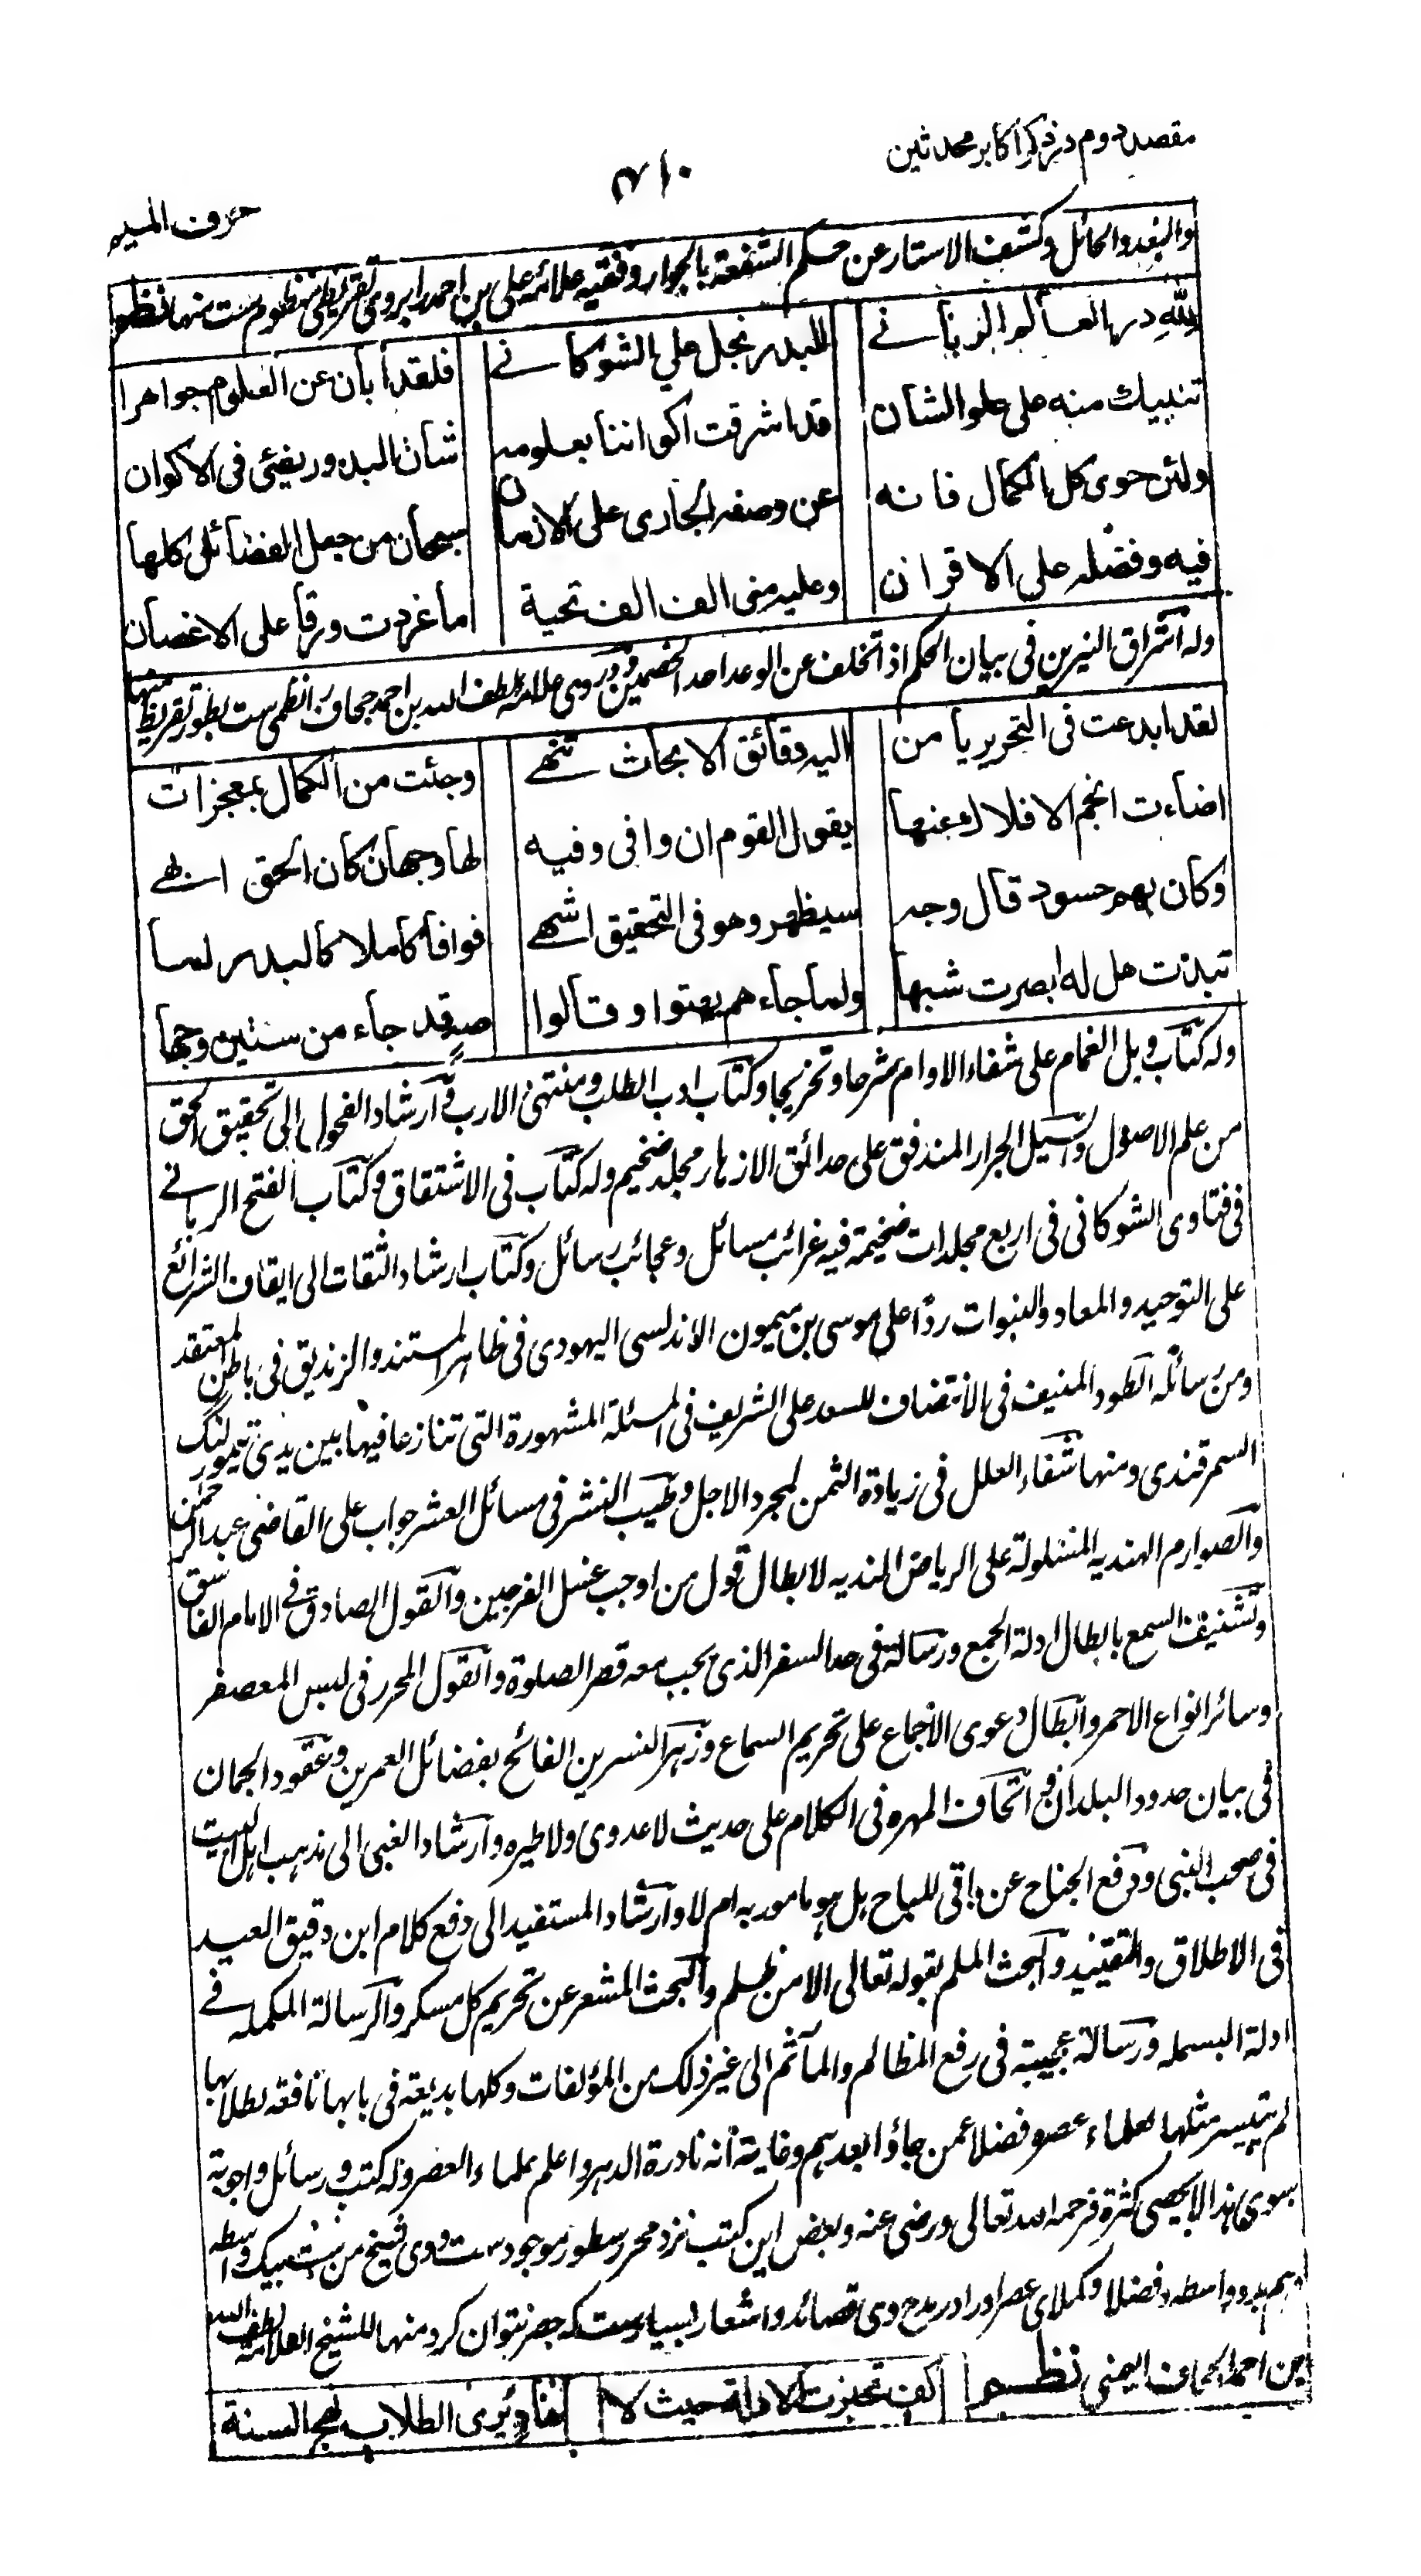 مقصد دوم در ذکر اکابر محدثین
۴۱۰
حرف المیم
والبعد والحائل وکشف الاستار عن حکم الشفعة بالجوار وفقیه علامه علی بن احمد را بروی تقریظی منظوم ست منها نظم
لله در العالم الربانے للبدر نجل علي الشوکانے فلقد أبان عن العلوم جواهرا
تنبیك منه علی علو الشان قد اشرقت اکواننا بعلومه شان البدور یضئی فی الاکوان
ولئن حوی کل الکمال فانه عن وصفه الجاری علی الازمان سبحان من جعل الفضائل کلها
فیه وفضله علی الاقران وعلیه منی الف الف تحیة ما غردت ورقا علی الاغصان
وله اشراق النیرین فی بیان الحکم اذا تخلف عن الوعد احد الخصمین ودر وی علامه لطف الله بن احمد جحاف را نظمی ست بطور تقریظ منها
لقد ابدعت فی التحریر یا من الیه دقائق الابحاث تنهے وجئت من الکمال بمعجزات
اضاءت انجم الافلاك منها یقول القوم ان وافی وفیه لها وجهان کان الحق ابهے
وکان بهم حسود قال وجه سیظهر وهو فی التحقیق اشهے فوافا کاملا کالبدر لما
تبدت هل له ابصرت شبها ولما جاءهم بهتوا وقالوا صدقد جاء من سنتین وجها
وله کتاب وبل الغمام علی شفاء الاوام شرحا وتخریجا وکتاب ادب الطلب ومنتهی الارب وآرشاد الفحول الی تحقیق الحق
من علم الاصول والسیل الجرار المندفق علی حدائق الازهار مجلد ضخیم وله کتاب فی الاشتقاق وکتاب الفتح الربانے
فی فتاوی الشوکانی فی اربع مجلدات ضخیمة فیه غرائب مسائل وعجائب رسائل وکتاب ارشاد الثقات الی ایقاف الشرائع
علی التوحید والمعاد والنبوات ردا علی موسی بن میمون الاندلسی الیهودی فی ظاهر المستند والزندیق فی باطن المعتقد
ومن رسائله الطود المنیف فی الانتصاف للسعد علی الشریف فی المسئلة المشهورة التی تنازعا فیها بین یدی تیمور لنگ
السمرقندی ومنها شفاء العلل فی زیادة الثمن لمجرد الاجل وطیب النشر فی مسائل العشر جواب علی القاضی عبد الرحمن
والصوارم الهندیه المسلولة علی الریاض الندیه لابطال قول من اوجب غسل الفرجین والقول الصادق فے الامام الفاسق
وتشنیف السمع بابطال ادلة الجمع ورسالة فی حد السفر الذی یجب معه قصر الصلوة والقول المحرر فی لبس المعصفر
وسائر انواع الاحمر وابطال دعوی الاجماع علی تحریم السماع وزهر النسرین الفائح بفضائل العمرین وعقود الجمان
فی بیان حدود البلدان واتحاف المهره فی الکلام علی حدیث لاعدوی ولا طیره وارشاد الغبی الی مذهب اهل البیت
فی صحب النبی ورفع الجناح عن باقی المباح هل هو مامور به ام لا وارشاد المستفید الی دفع کلام ابن دقیق العید
فی الاطلاق والتقیید والبحث الملم بقوله تعالی الا من ظلم والبحث المشعر عن تحریم کل مسکر والرسالة المکمله فے
ادلة البسمله ورسالة عجیبة فی رفع المظالم والمآثم الی غیر ذلک من المؤلفات وکلها بدیعة فی بابها نافعة لطلابها
لم یتیسر مثلها لعلماء عصره فضلا عمن جاؤا بعدهم وغایته انه نادرة الدهر واعلم علماء العصر وله کتب ورسائل واجوبة
سوی هذا لایحصی کثرة فرحمه الله تعالی ورضی عنه وبعض این کتب نزد محرر سطور موجود ست ووی شیخ من ست بیک واسطه
وهم بدو واسطه وفضلا وکملای عصر او را در مدح وی قصائد واشعار بسیارست که حصر نتوان کرد منها للشیخ العلامه لطف الله
بن احمد الجحاف الیمنی نظم اکف تحیزت الادلة حیث لا لفا یری الطلاب نهج السنة